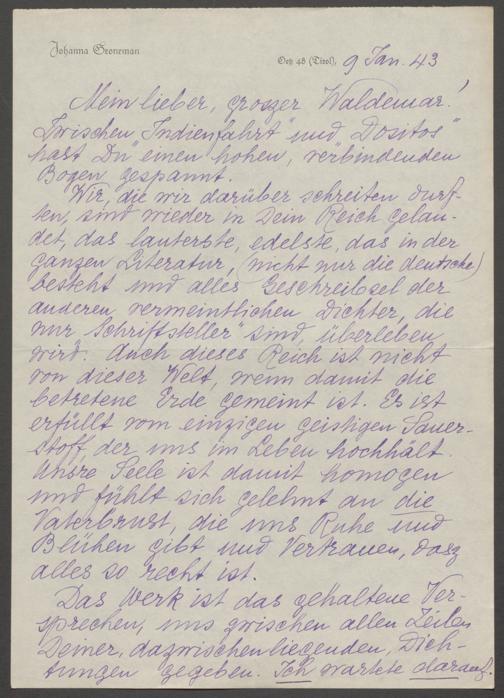 Johanna Groneman
Oetz 48 (Tirol), 9 Jan. 43
Mein lieber, groszer Waldemar!
Zwischen „Indienfahrt" und „Dositos"
hast Du einen hohen, verbindenden
Bogen gespannt.
Wir, die wir darüber schreiten durf-
ten, sind wieder in Dein Reich gelan-
det, das lauterste, edelste, das in der
ganzen Literatur, (nicht nur die deutsche)
besteht und alles Geschreibsel der
anderen, vermeintlichen Dichter, die
nur „Schriftsteller" sind, überleben
wird. Auch dieses Reich ist nicht
von dieser Welt, wenn damit die
betretene Erde gemeint ist. Es ist
erfüllt vom einzigen geistigen Sauer-
stoff, der uns im Leben hochhält.
Unsre Seele ist damit homogen
und fühlt sich gelehnt an die
Vaterbrust, die uns Ruhe und
Blühen gibt und Vertrauen, dasz
alles so recht ist.
Das Werk ist das gehaltene Ver-
sprechen, uns zwischen allen Zeilen
Deiner, dazwischenliegenden, Dich-
tungen gegeben. Ich wartete darauf.